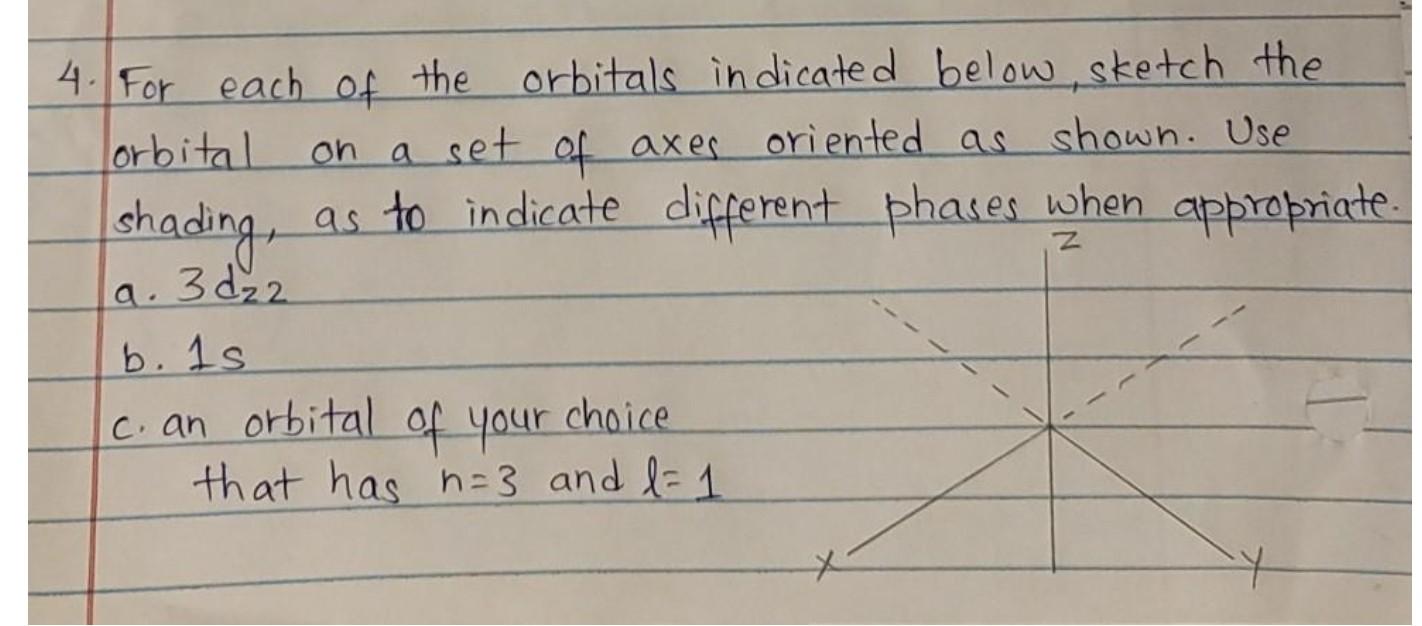 4. For each of the orbitals indicated below, sketch the
orbital on a set of axes oriented as shown. Use
shading, as to indicate different phases when appropriate.
z
a. 3dz2
b. 1s
c. an orbital of your choice
that has n=3 and l=1
x
y